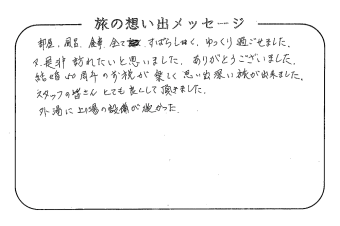 旅の想い出メッセージ
部屋、風呂、食事、全て すばらしく、ゆっくり過ごせました。
又是非訪れたいと思いました。ありがとうございました。
結婚50周年の 楽しく思い出深い旅が出来ました。
スタッフの皆さんとても良くして頂きました。
外湯に 場の設備が